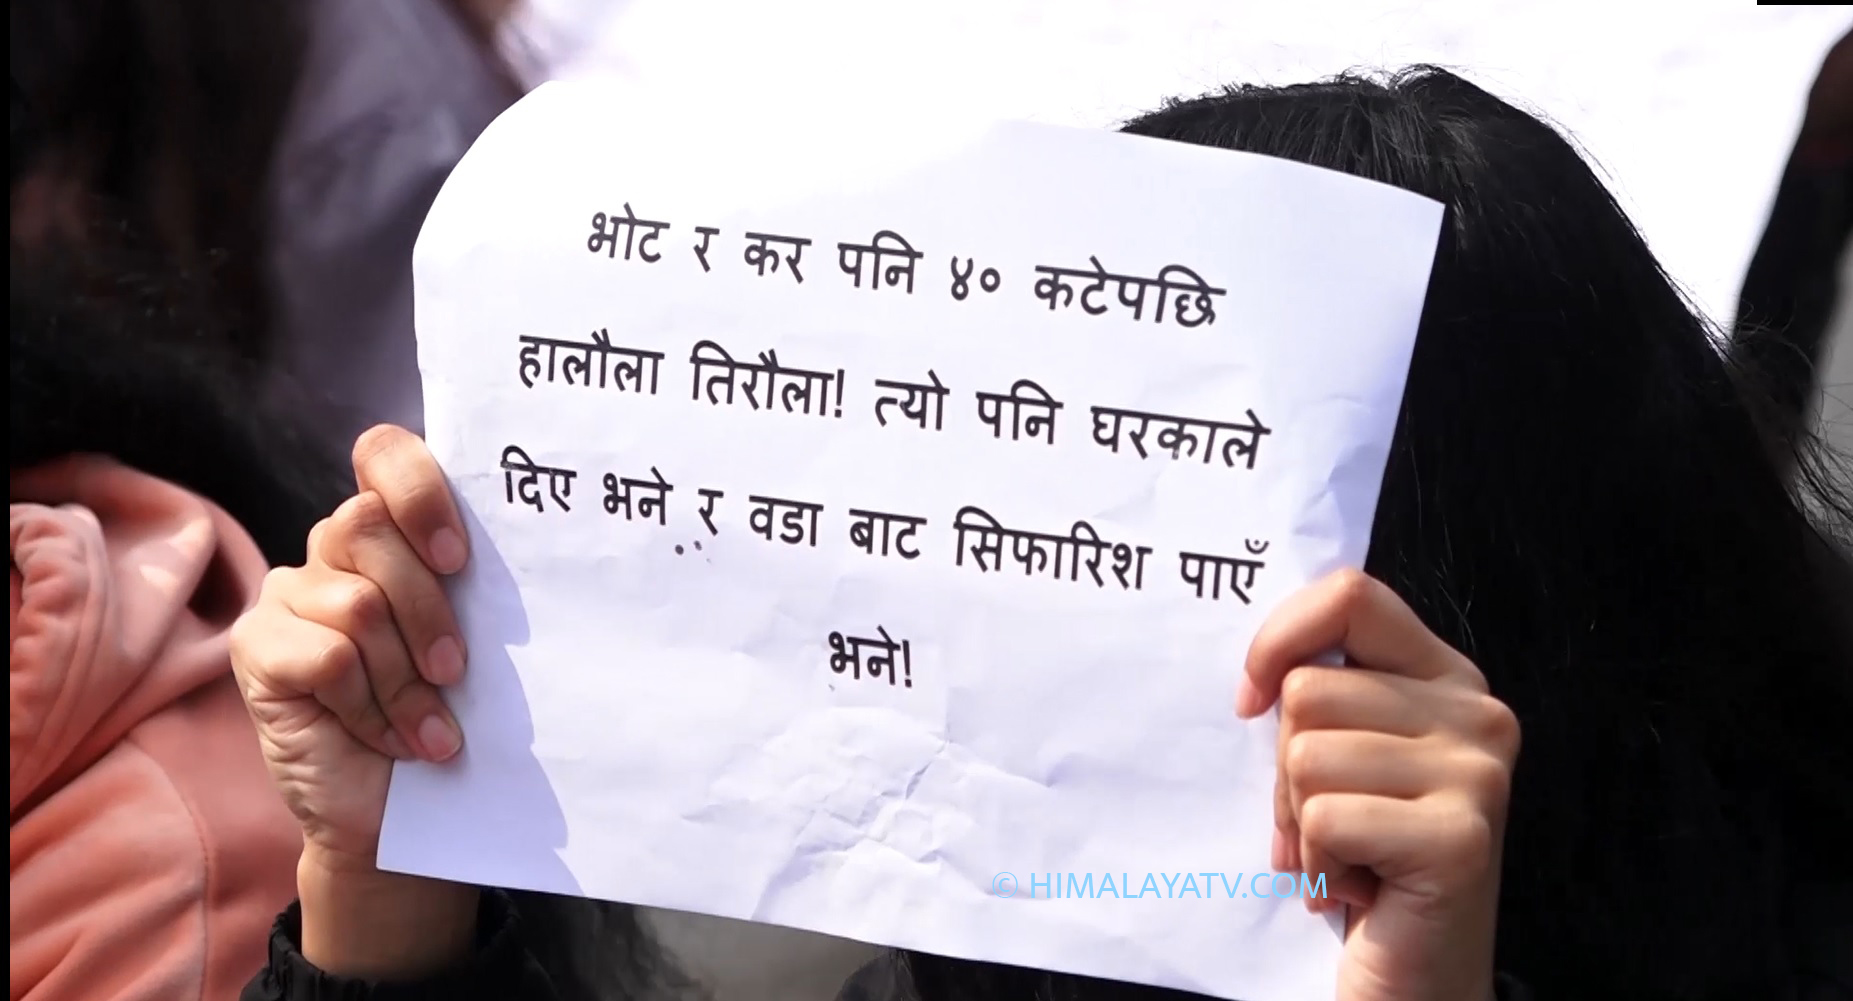 भोट र कर पनि ४० कटेपछि
हालौला तिरौला! त्यो पनि घरकाले
दिए भने र वडा बाट सिफारिश पाएँ
भने!
© HIMALAYATV.COM